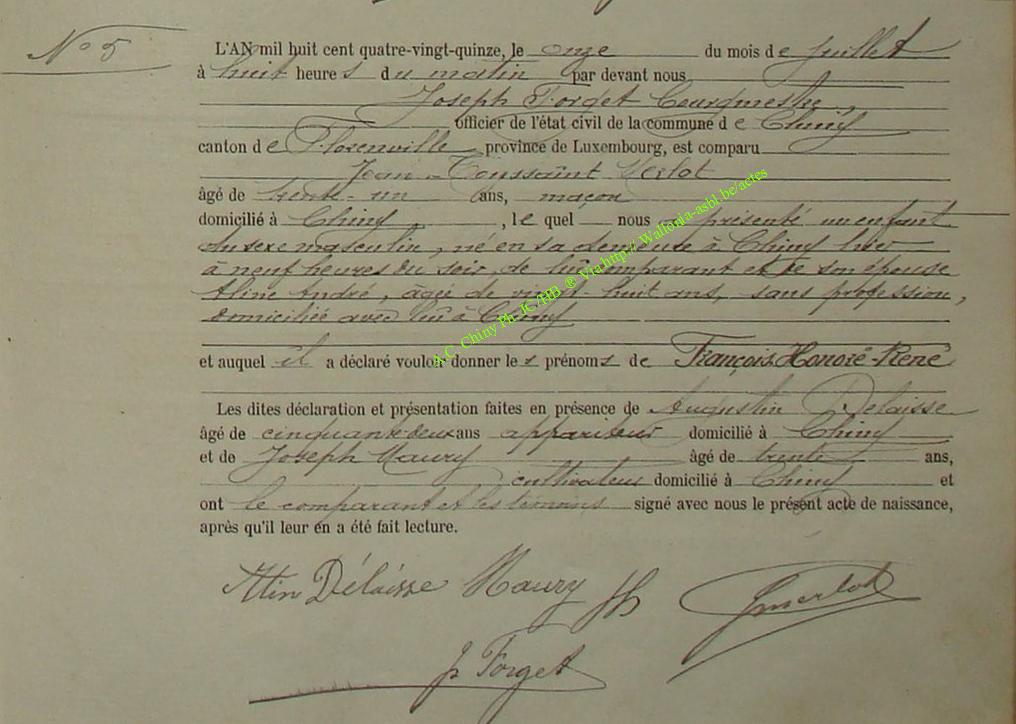 N° 5
L'AN mil huit cent quatre-vingt-quinze, le onze du mois de juillet
à huit heures du matin par devant nous
Joseph Forget Bourgmestre,
officier de l'état civil de la commune de Chiny
canton de Florenville province de Luxembourg, est comparu
Jean-Toussaint Merlot
âgé de trente-un ans, maçon
domicilié à Chiny, le quel nous a présenté un enfant
du sexe masculin, né en sa demeure à Chiny hier
à neuf heures du soir, de lui comparant et de son épouse
Aline André, âgée de vingt huit ans, sans profession,
domiciliée avec lui à Chiny
et auquel il a déclaré vouloir donner les prénoms de François Honoré-René
Les dites déclaration et présentation faites en présence de Augustin Delaisse
âgé de cinquante-deux ans appariteur domicilié à Chiny
et de Joseph Maury âgé de trente ans,
cultivateur domicilié à Chiny et
ont le comparant et les témoins signé avec nous le présent acte de naissance,
après qu'il leur en a été fait lecture.
Atin Délaisse Maury Jh Jmerlot
J. Forget
A.C. Chiny Ph JC /HB @ Via http:// Wallonia-asbl.be/actes